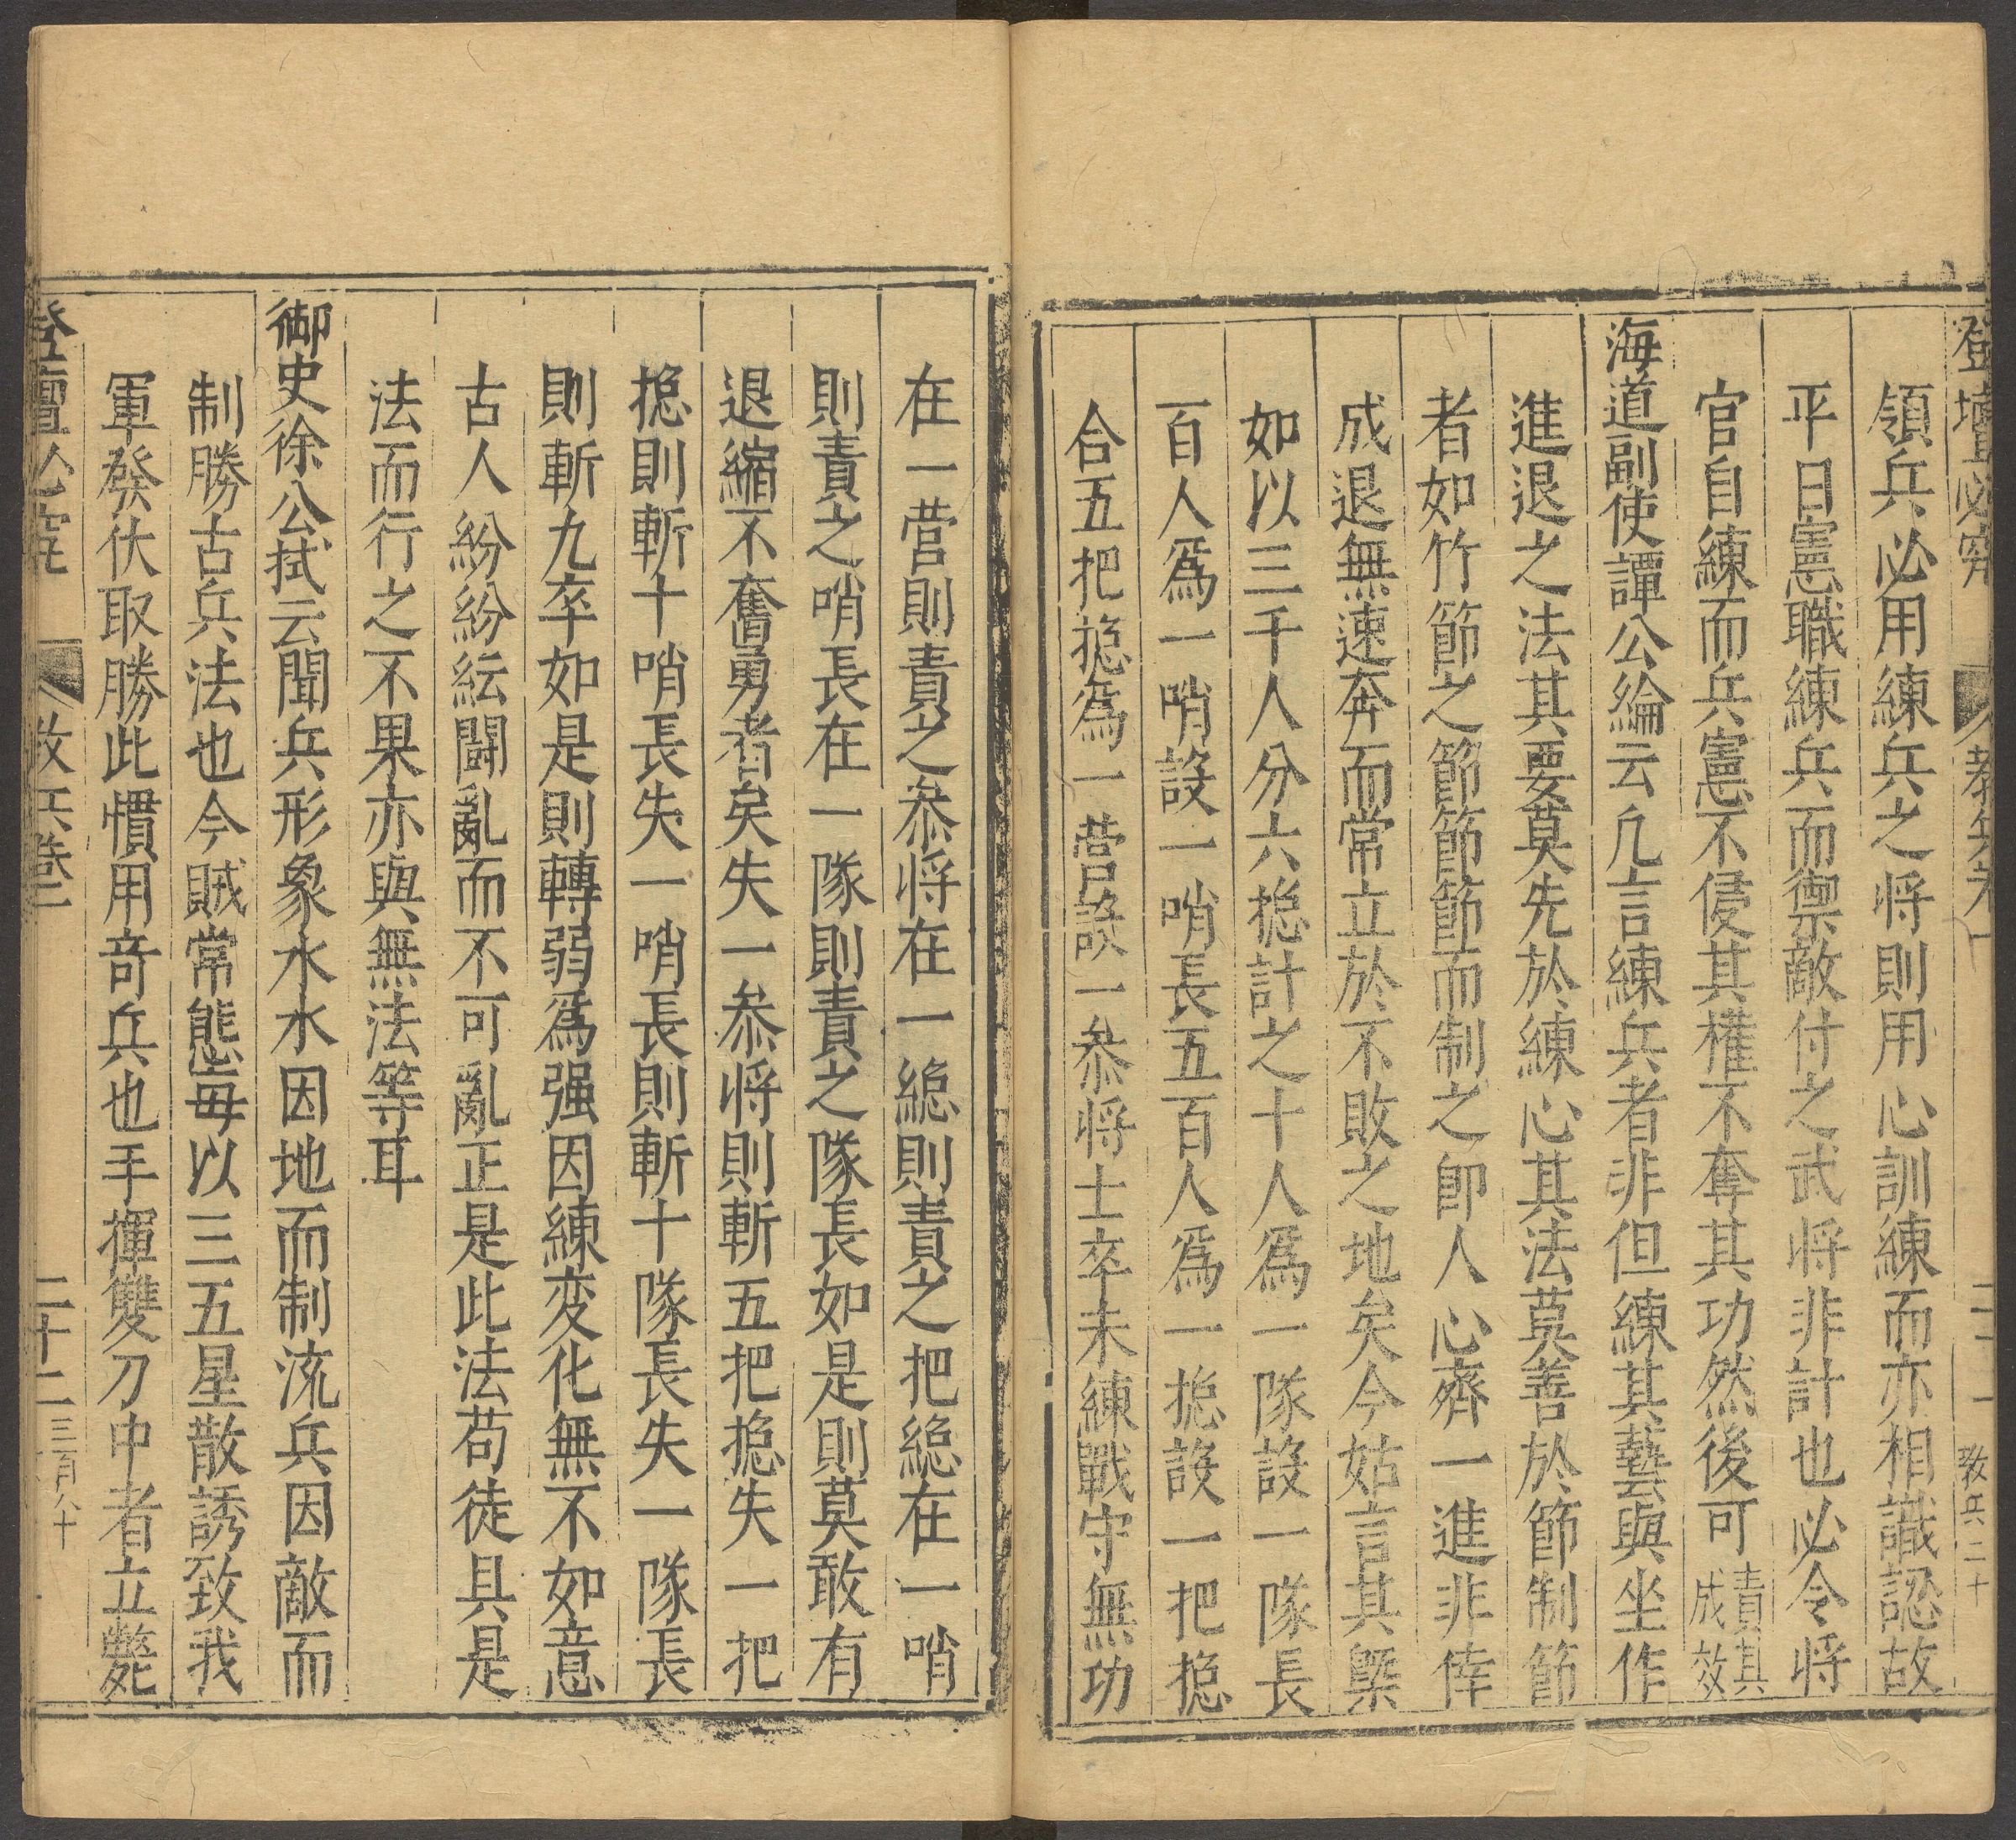 登壇必究 教兵卷 二十一 教兵二十
領兵必用練兵之将則用心訓練而亦相識認故
平日憲職練兵而禦敵付之武将非計也必令将
官自練而兵憲不侵其權不奪其功然後可責其成效
海道副使譚公綸云凢言練兵者非但練其藝與坐作
進退之法其要莫先於練心其法莫善於節制節
者如竹節之節節節而制之即人心齊一進非倖
成退無速奔而常立於不敗之地矣今姑言其槩
如以三千人分六捴計之十人爲一隊設一隊長
百人爲一哨設一哨長五百人爲一捴設一把捴
合五把捴爲一營設一叅将士卒未練戰守無功
在一营則責之叅将在一緫則責之把緫在一哨
則責之哨長在一隊則責之隊長如是則莫敢有
退縮不奮勇者矣失一叅将則斬五把捴失一把
捴則斬十哨長失一哨長則斬十隊長失一隊長
則斬九卒如是則轉弱爲强因練変化無不如意
古人紛紛紜闘亂而不可亂正是此法苟徒具是
法而行之不果亦與無法等耳
御史徐公拭云聞兵形象水水因地而制流兵因敵而
制勝古兵法也今賊常態毎以三五星散誘致我
軍發伏取勝此慣用竒兵也手揮雙刀中者立斃
登壇必究 教兵卷 二十二 三百八十